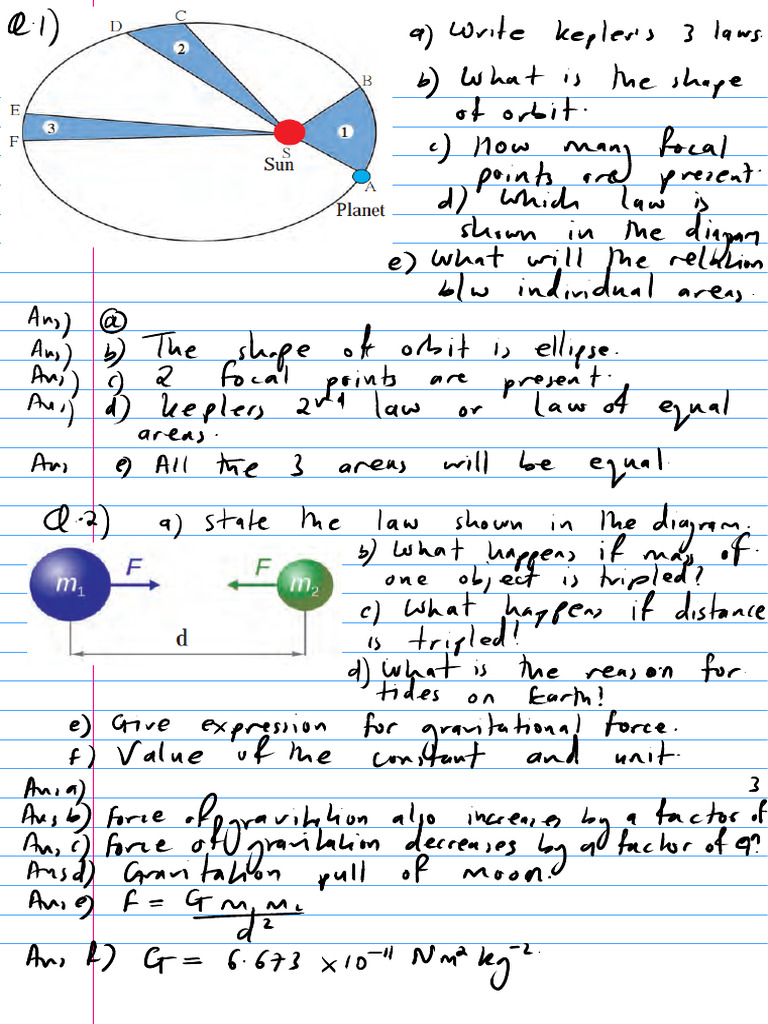 Q.1)
a) Write kepler's 3 laws.
b) What is the shape
of orbit.
c) How many focal
points are present.
d) Which law is
shown in the diagram
e) What will the relation
b/w individual areas.
D C
2
B
E
3
F
1
S
Sun
A
Planet
Ans) a
Ans) b) The shape of orbit is ellipse.
Ans) c) 2 focal points are present.
Ans) d) keplers 2nd law or law of equal
areas.
Ans e) All the 3 areas will be equal
Q.2) a) State the law shown in the diagram.
b) What happens if mass of
one object is tripled?
c) What happens if distance
is tripled?
d) What is the reason for
tides on Earth?
m1 F F m2
d
e) Give expression for gravitational force.
f) Value of the constant and unit.
Ans a)
Ans b) Force of gravitation also increases by a factor of 3
Ans c) Force of gravitation decreases by a factor of 9.
Ans d) Gravitation pull of moon.
Ans e) F = G m1 m2
d2
Ans f) G = 6.673 × 10⁻¹¹ Nm² kg⁻².